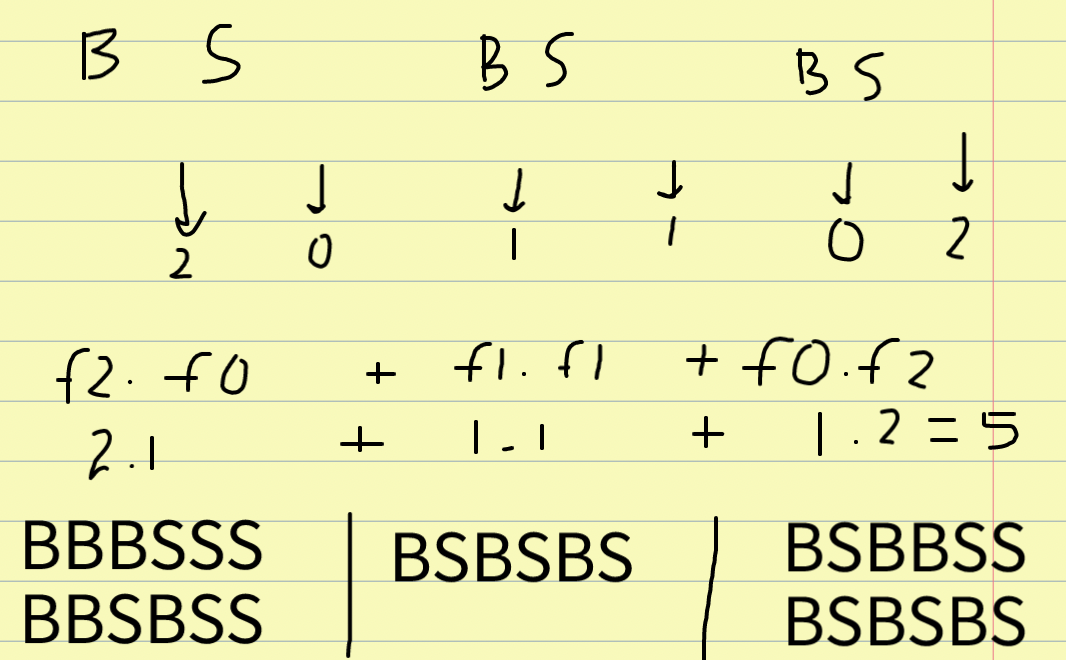 B S B S B S
↓ ↓ ↓ ↓ ↓ ↓
2 0 1 1 0 2
f2 . f0 + f1 . f1 + f0 . f2
2 . 1 + 1 . 1 + 1 . 2 = 5
BBBSSS | BSBSBS | BSBBSS
BBSBSS BSBSBS